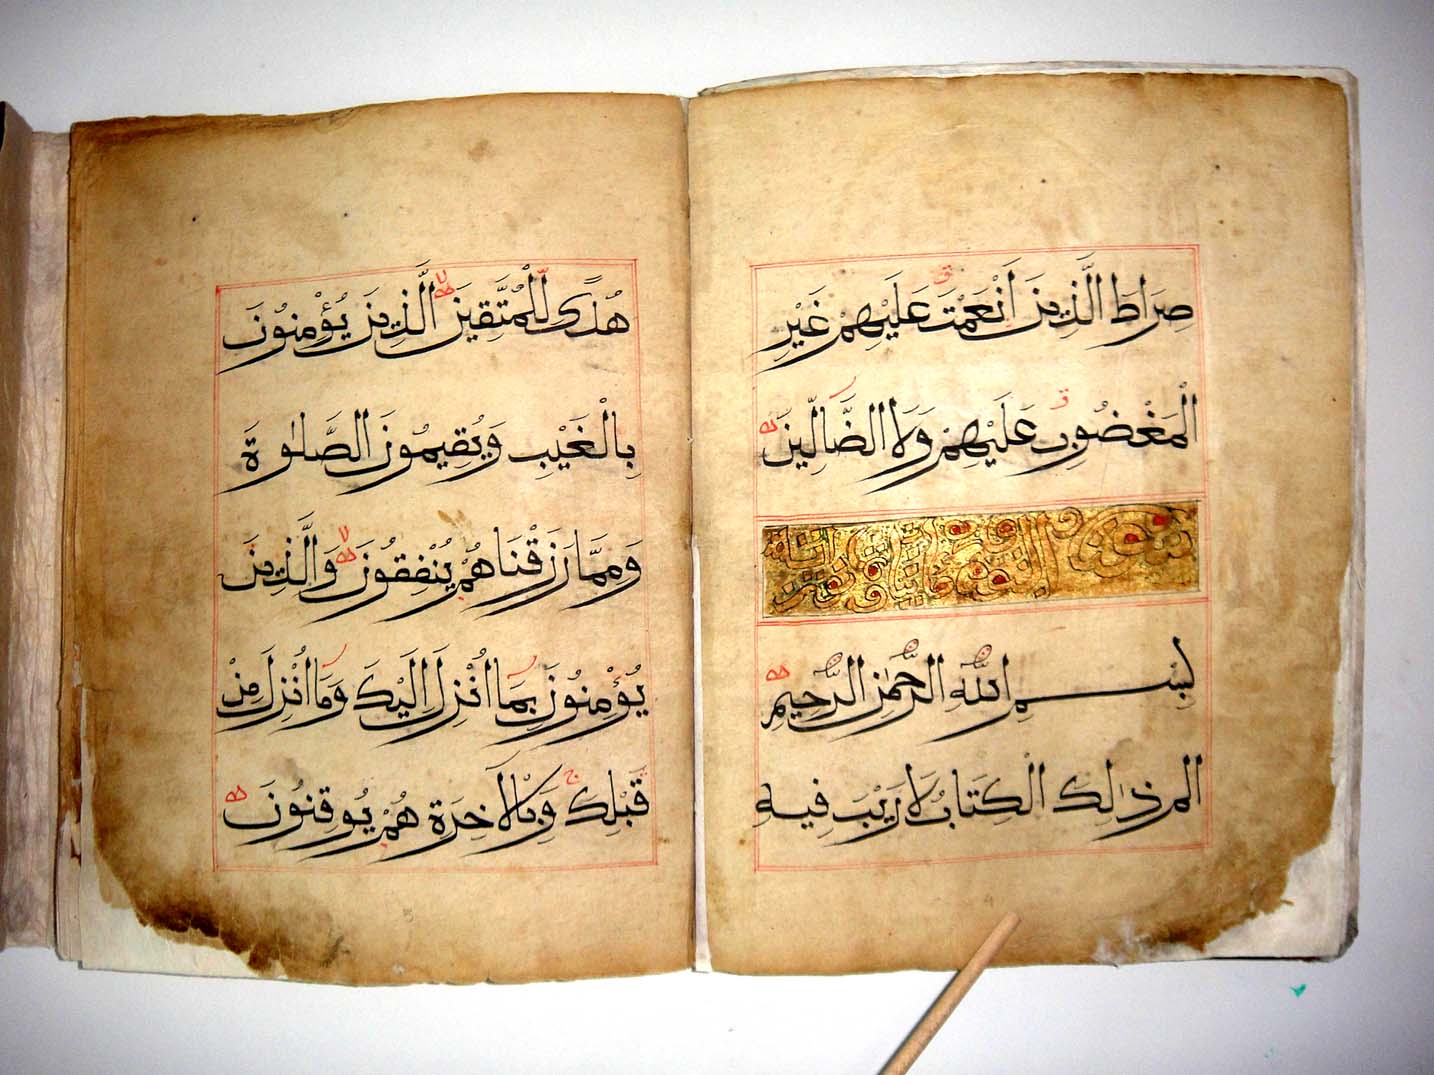 صِرَاطَ الَّذِينَ أَنْعَمْتَ عَلَيْهِمْ غَيْرِ
الْمَغْضُوبِ عَلَيْهِمْ وَلَا الضَّالِّينَ
بِسْمِ اللَّهِ الرَّحْمَٰنِ الرَّحِيمِ
الم ذَٰلِكَ الْكِتَابُ لَا رَيْبَ فِيهِ
هُدًى لِّلْمُتَّقِينَ الَّذِينَ يُؤْمِنُونَ
بِالْغَيْبِ وَيُقِيمُونَ الصَّلٰوةَ
وَمِمَّا رَزَقْنَاهُمْ يُنْفِقُونَ وَالَّذِينَ
يُؤْمِنُونَ بِمَا أُنْزِلَ إِلَيْكَ وَمَا أُنْزِلَ مِنْ
قَبْلِكَ وَبِالْآخِرَةِ هُمْ يُوقِنُونَ